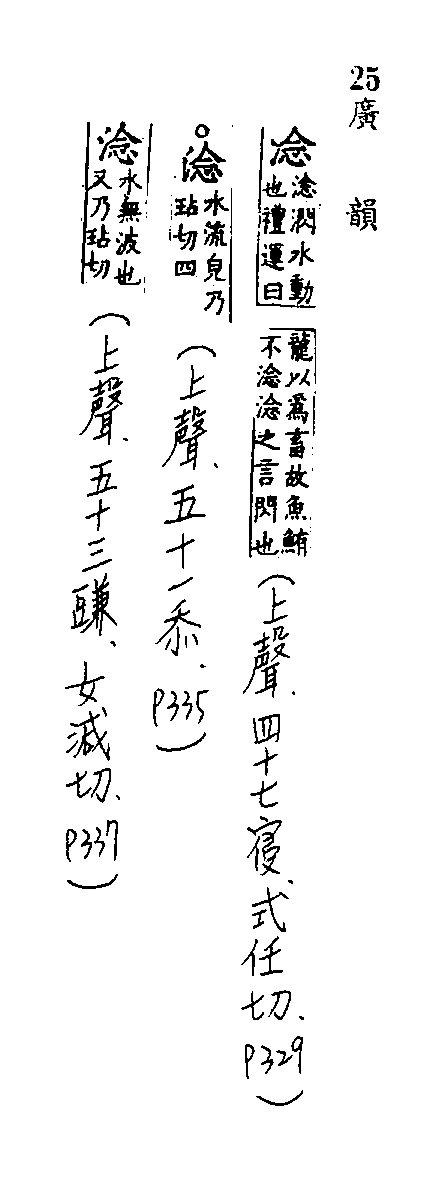 25廣韻
淰淰濶水動也禮運曰龍以爲畜故魚鮪不淰淰之言閃也(上聲、四十七寑、式任切、P329)
淰水流皃乃玷切四(上聲、五十一忝、P335)
淰水無波也又乃玷切(上聲、五十三豏、女減切、P337)